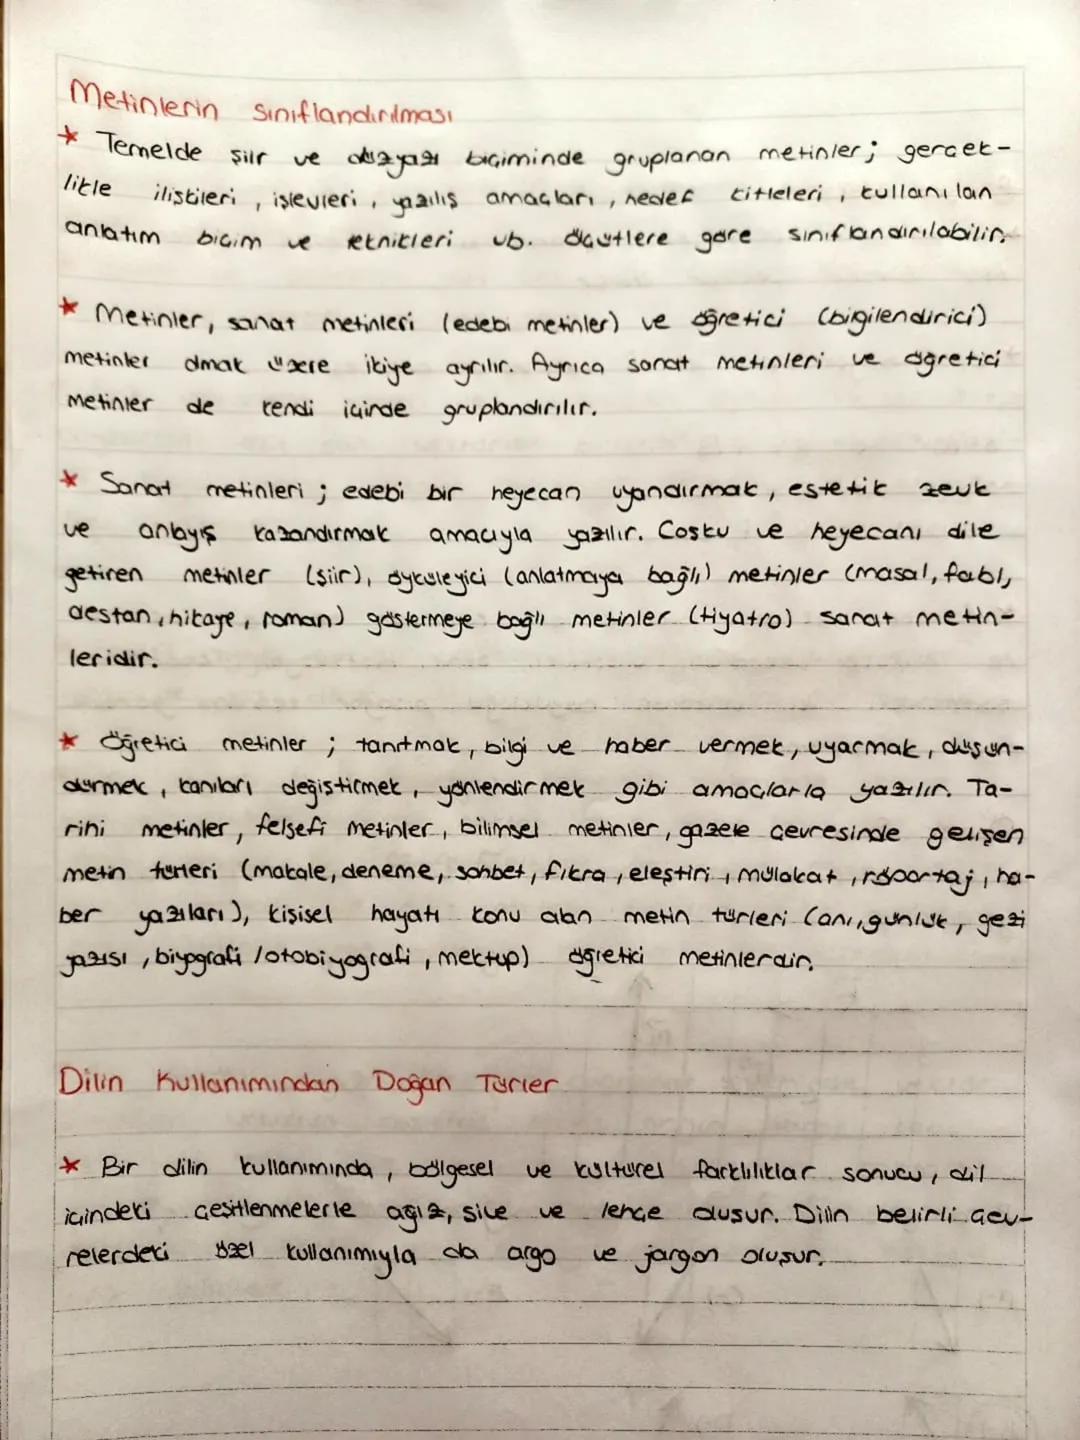 Metinlerin sınıflandırılması
* Temelde şiir ve düzyazı biçiminde gruplanan metinler; gerçek-
likle ilişkileri, işlevleri, yazılış amaçları, hedef kitleleri, kullanılan
anlatım biçim ve teknikleri vb. ölçütlere göre sınıflandırılabilir.
* Metinler, sanat metinleri (edebi metinler) ve öğretici (bilgilendirici)
metinler olmak üzere ikiye ayrılır. Ayrıca sanat metinleri ve öğretici
metinler de kendi içinde gruplandırılır.
* Sanat metinleri; edebi bir heyecan uyandırmak, estetik zevk
ve anlayış kazandırmak amacıyla yazılır. Coşku ve heyecanı dile
getiren metinler (şiir), öyküleyici (anlatmaya bağlı) metinler (masal, fabl,
destan, hikaye, roman) göstermeye bağlı metinler (tiyatro) sanat metin-
leridir.
* Öğretici metinler; tanıtmak, bilgi ve haber vermek, uyarmak, düşün-
dürmek, kanıları değiştirmek, yönlendirmek gibi amaçlarla yazılır. Ta-
rihi metinler, felsefi metinler, bilimsel metinler, gazete çevresinde gelişen
metin türleri (makale, deneme, sohbet, fıkra, eleştiri, mülakat, röportaj, ha-
ber yazıları), kişisel hayatı konu alan metin türleri (anı, günlük, gezi
yazısı, biyografi / otobiyografi, mektup) öğretici metinlerdir.
Dilin Kullanımından Doğan Türler
* Bir dilin kullanımında, bölgesel ve kültürel farklılıklar sonucu, dil
içindeki çeşitlenmelerle ağız, şive ve lehçe oluşur. Dilin belirli çev-
relerdeki özel kullanımıyla da argo ve jargon oluşur.